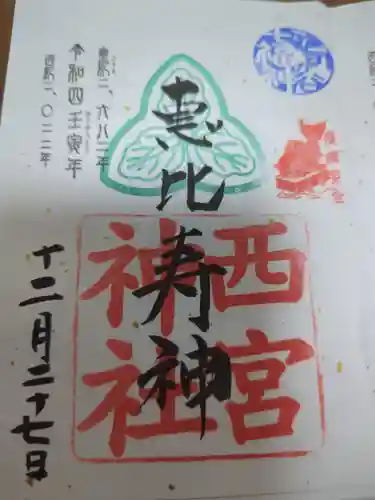 恵比寿神
西宮
神社
皇紀二、六八二年
令和四壬寅年
西紀二、〇二二年
十二月二十七日